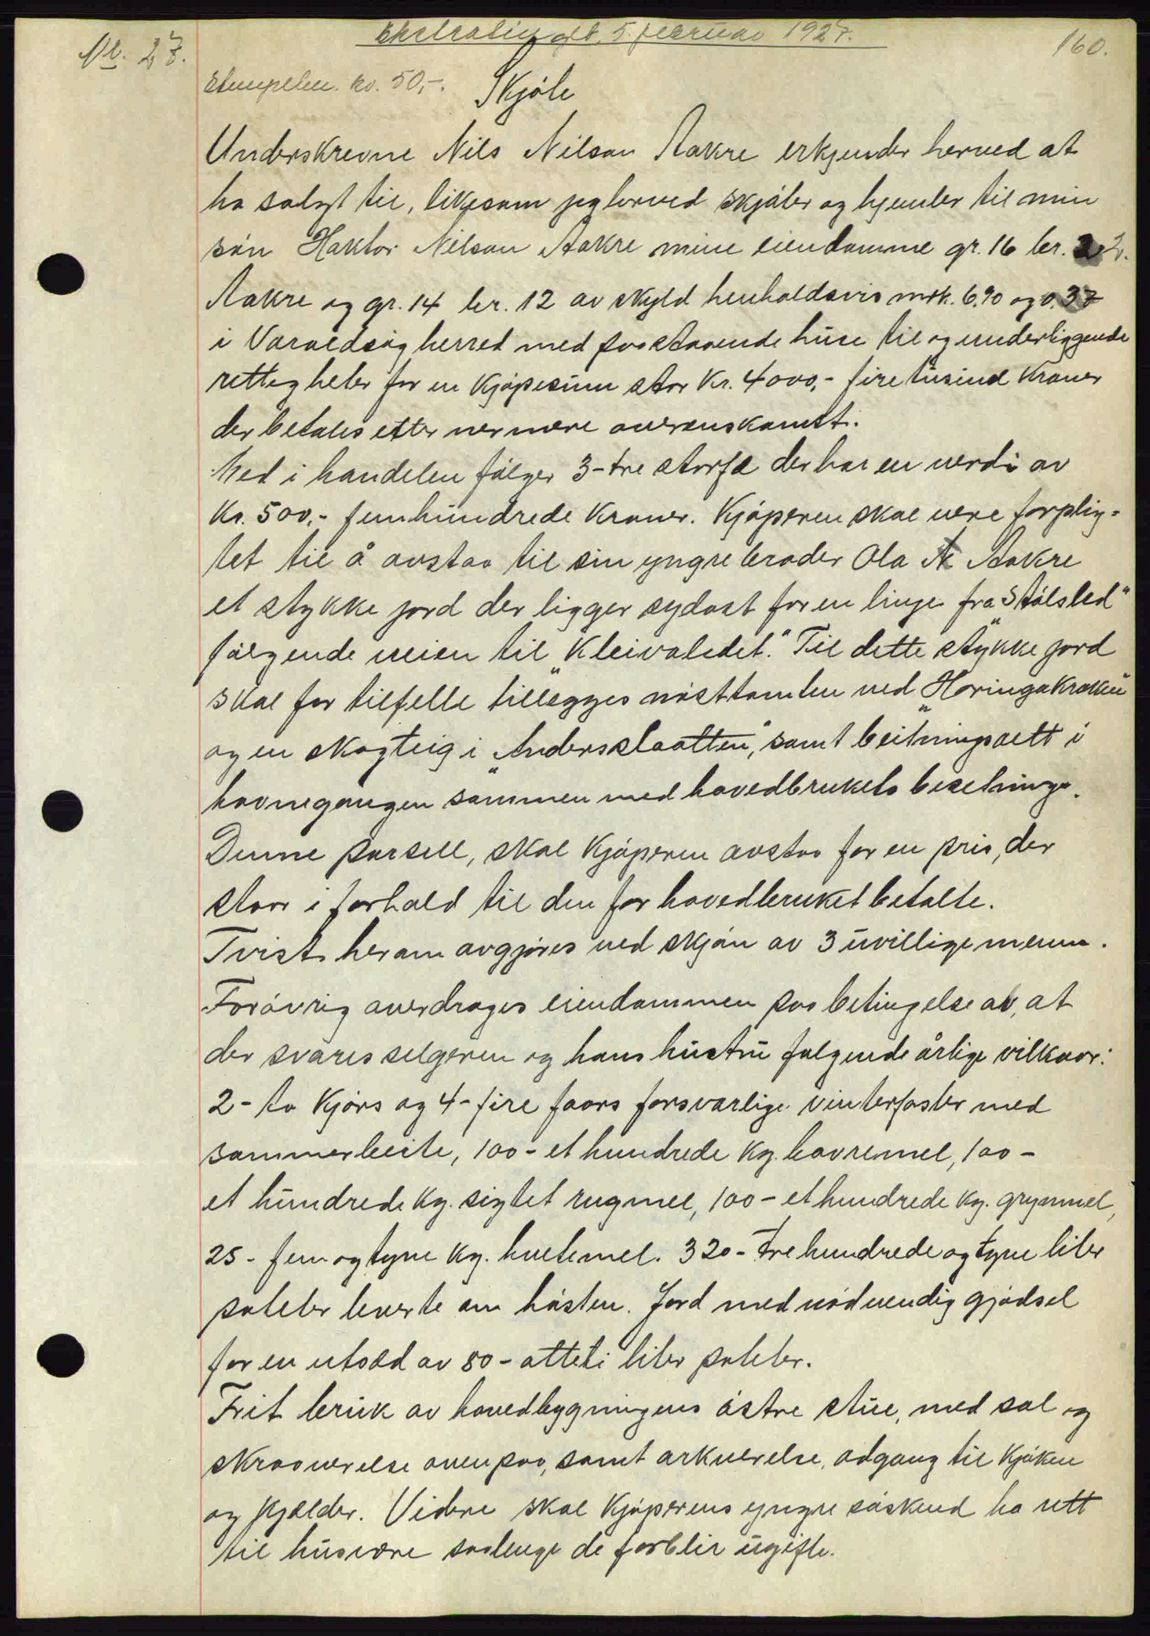 Ekstrating off. 5. februar 1927.
160.
Nr. 27.
Stempelm. kr. 50,-.
Skjöte
Underskrevne Nils Nilsen Aakre erkjender herved at
ha solgt til, likesom jeg herved skjöter og hjemler til min
sön Haktor Nilsen Aakre mine eiendomme gr. 16 br. 2
Aakre og gr. 14 br. 12 av skyld henholdsvis mrk. 6.90 og 0.37
i Varaldsöy herred med paastaaende huse til og underliggende
rettigheter for en kjöpesum stor Kr. 4000,- fire tusind Kroner
der betales etter nermere overenskomst.
Med i handelen fölger 3-tre storfæ der har en verdi av
Kr. 500,- femhundrede Kroner. Kjöperen skal være forplig-
tet til å avstaa til sin yngre broder Ola Aakre
et stykke jord der ligger sydöst for en linje fra "Stölsled"
fölgende veien til "Kleivaledet." Til dette stykke jord
skal for tilfelle tillegges nösttomten ved "Horingakroken"
og en skogteig i "Andersslaatten," samt beitningsrett i
havnegangen sammen med hovedbrukets besetninge.
Denne parsell, skal Kjöperen avstaa for en pris, der
staar i forhold til den for hovedbruket betalte.
Tvist herom avgjöres ved skjön av 3 uvillige menn.
Forövrig overdrages eiendommen paa betingelse av, at
der svares selgeren og hans hustru fölgende årlige vilkaar:
2-to Kjörs og 4-fire faars forsvarlige vinterfoster med
sommerbeite, 100-et hundrede kg. havremel, 100-
et hundrede kg. sigtet rugmel, 100-et hundrede kg. grynmel,
25-fem og tyve kg. hvetemel. 320-tre hundrede og tyve liter
poteter leverte om hösten. Jord med nödvendig gjödsel
for en utsæd av 80-otteti liter poteter.
Frit bruk av hovedbygningens östre stue, med sal og
skraaverelse ovenpaa, samt arkverelse, adgang til Kjöken
og Kjælder. Videre skal Kjöperens yngre söskend ha rett
til husvære saalenge de forblir ugifte.